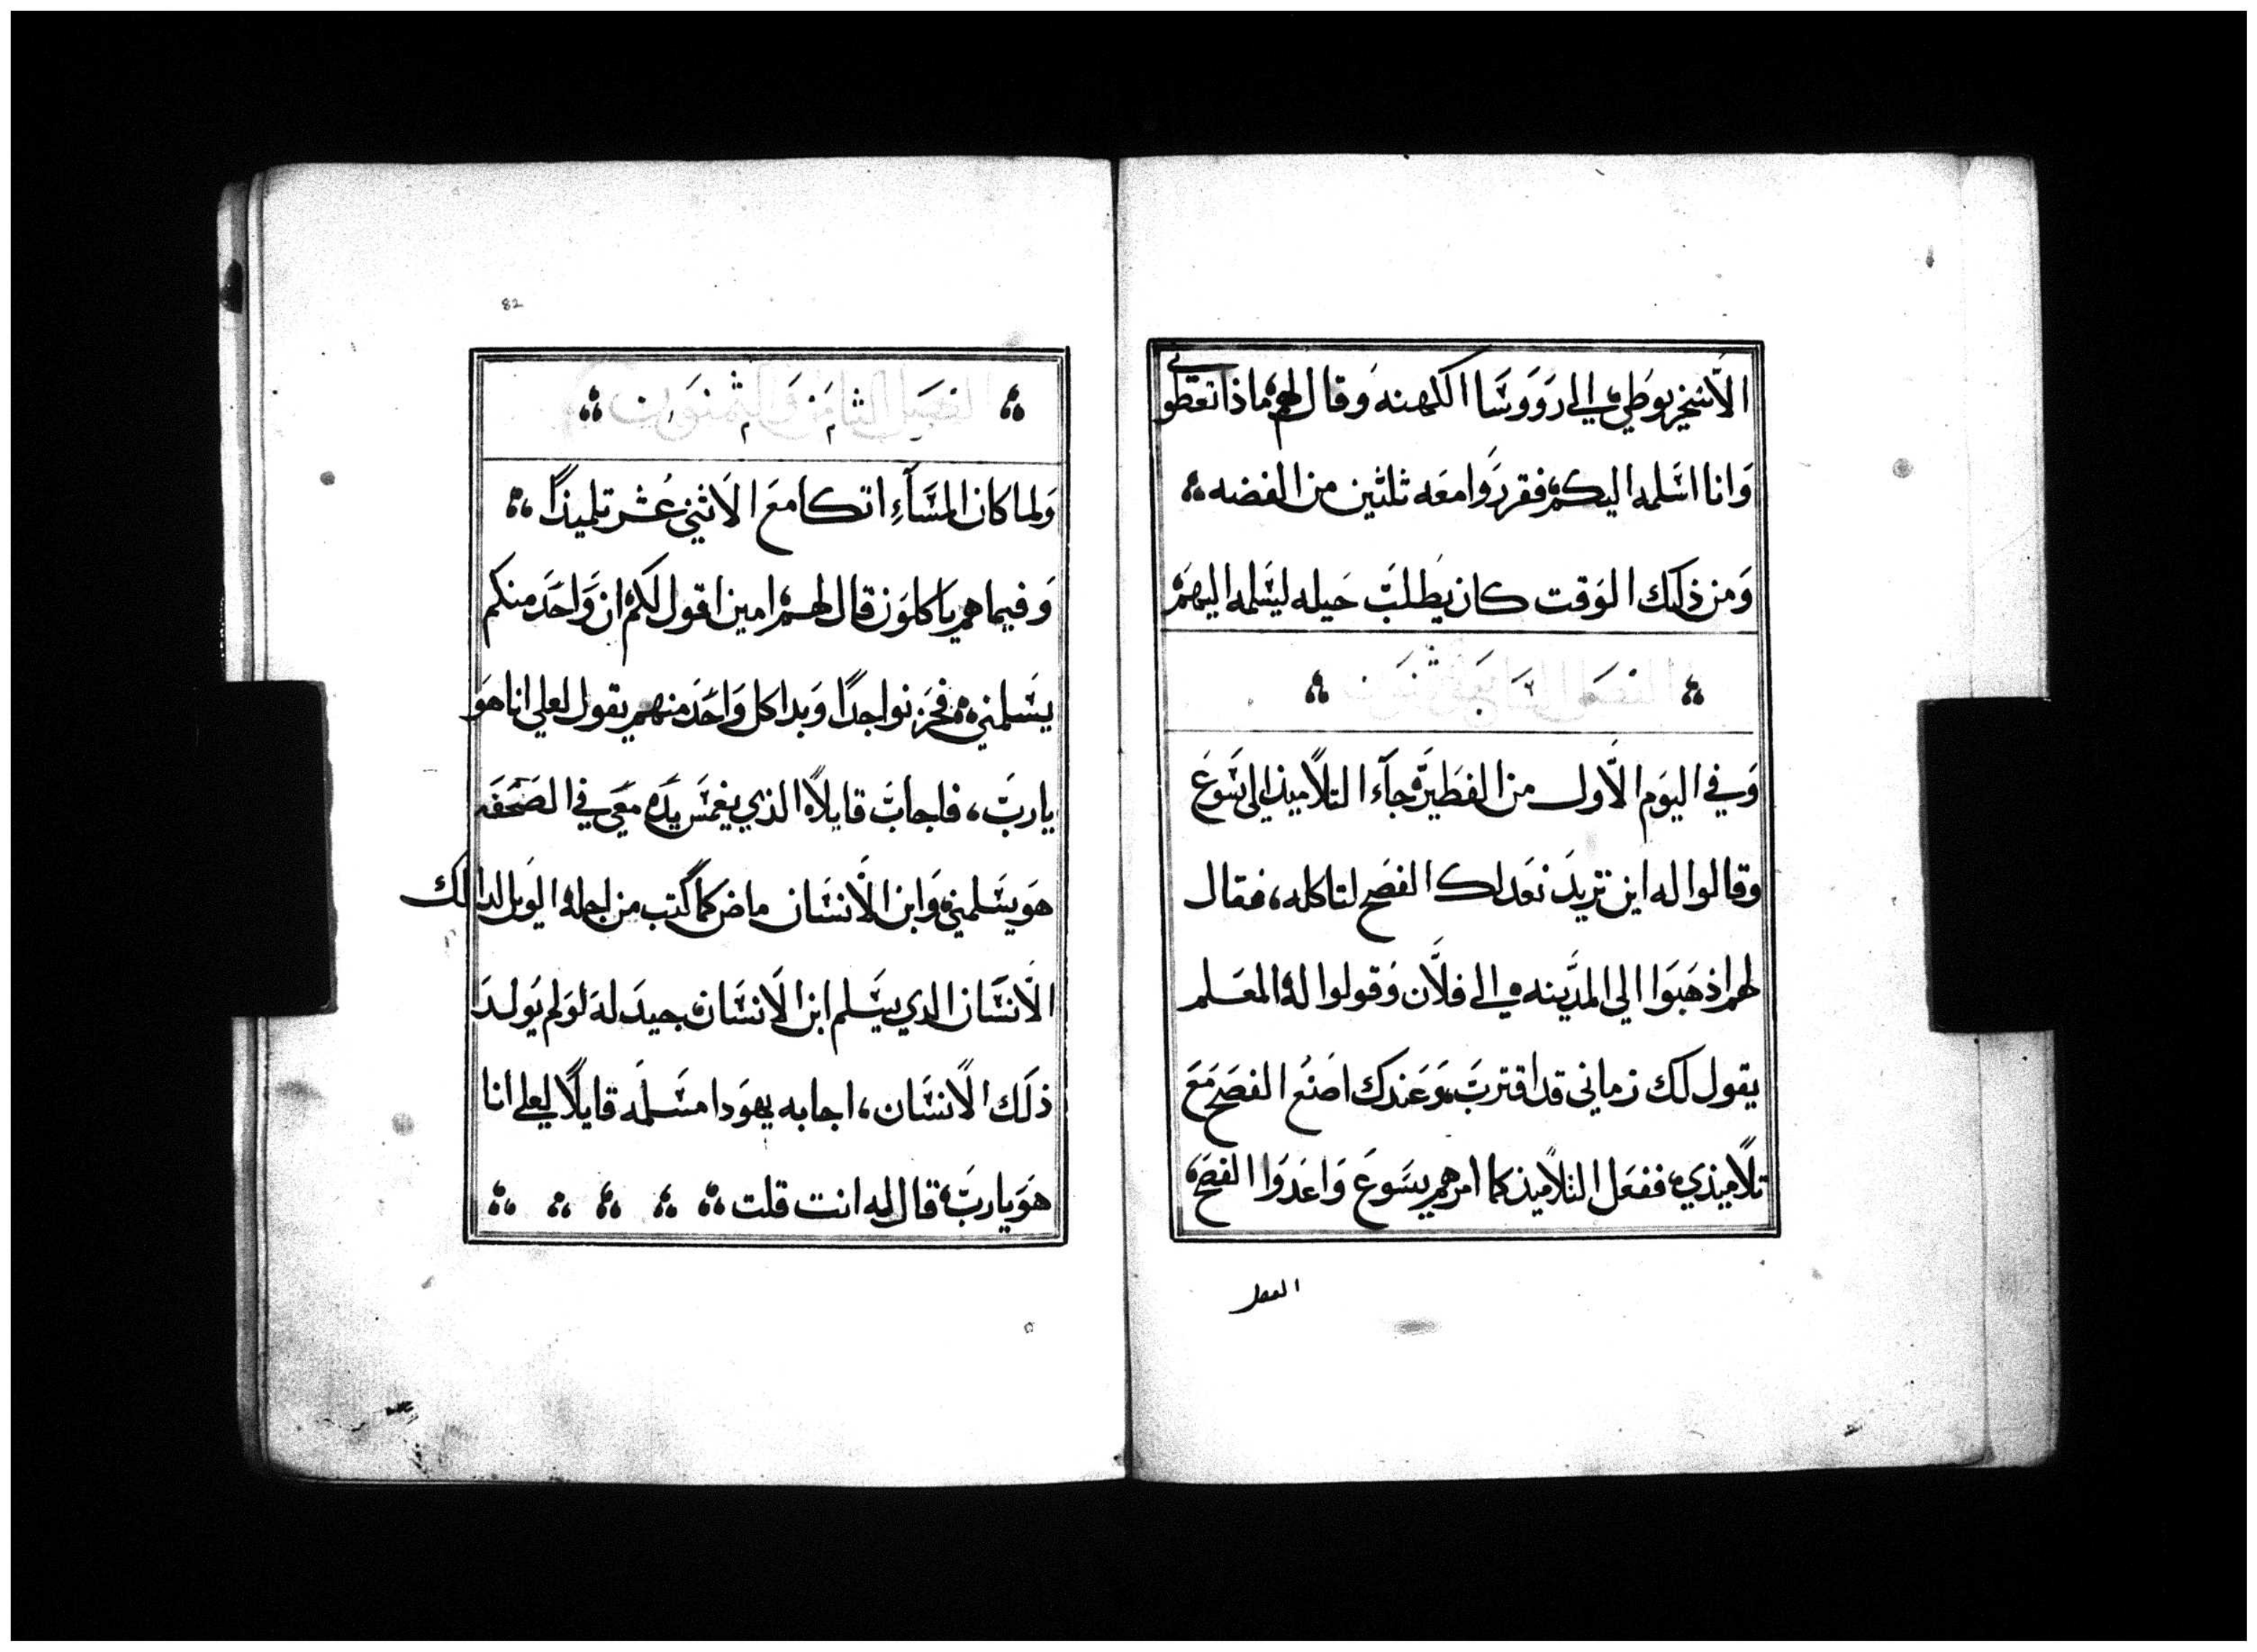 الاسخريوطي الى رووسا الكهنه وقال لهم ماذا تعطوني
وانا اسلمه اليكم فقرروا معه ثلثين من الفضه
ومن ذلك الوقت كان يطلب حيله ليسلمه اليهم
الفصل السابع والثمنون
وفي اليوم الاول من الفطير جآء التلاميذ الى يسوع
وقالوا له اين تريد نعد لك الفصح لتاكله، فقال
لهم اذهبوا الي المدينه الى فلان وقولوا له المعلم
يقول لك زماني قد اقترب وعندك اصنع الفصح مع
تلاميذي، ففعل التلاميذ كما امرهم يسوع واعدوا الفصح
الفصل
82
الفصل الثامن والثمنون
ولما كان المسآء اتكا مع الاثني عشر تلميذًا
وفيما هم ياكلون قال لهم امين اقول لكم ان واحد منكم
يسلمني فحزنوا جدًا وبدا كل واحد منهم يقول لعلي انا هو
يارب، فاجاب قايلا الذي يغمس يده معي في الصحفه
هو يسلمني وابن الانسان ماض كما كتب من اجله الويل لذالك
الانسان الدي يسلم ابن الانسان جيد له لو لم يولد
ذلك الانسان، اجابه يهودا مسلمه قايلًا لعلي انا
هو يارب، قال له انت قلت